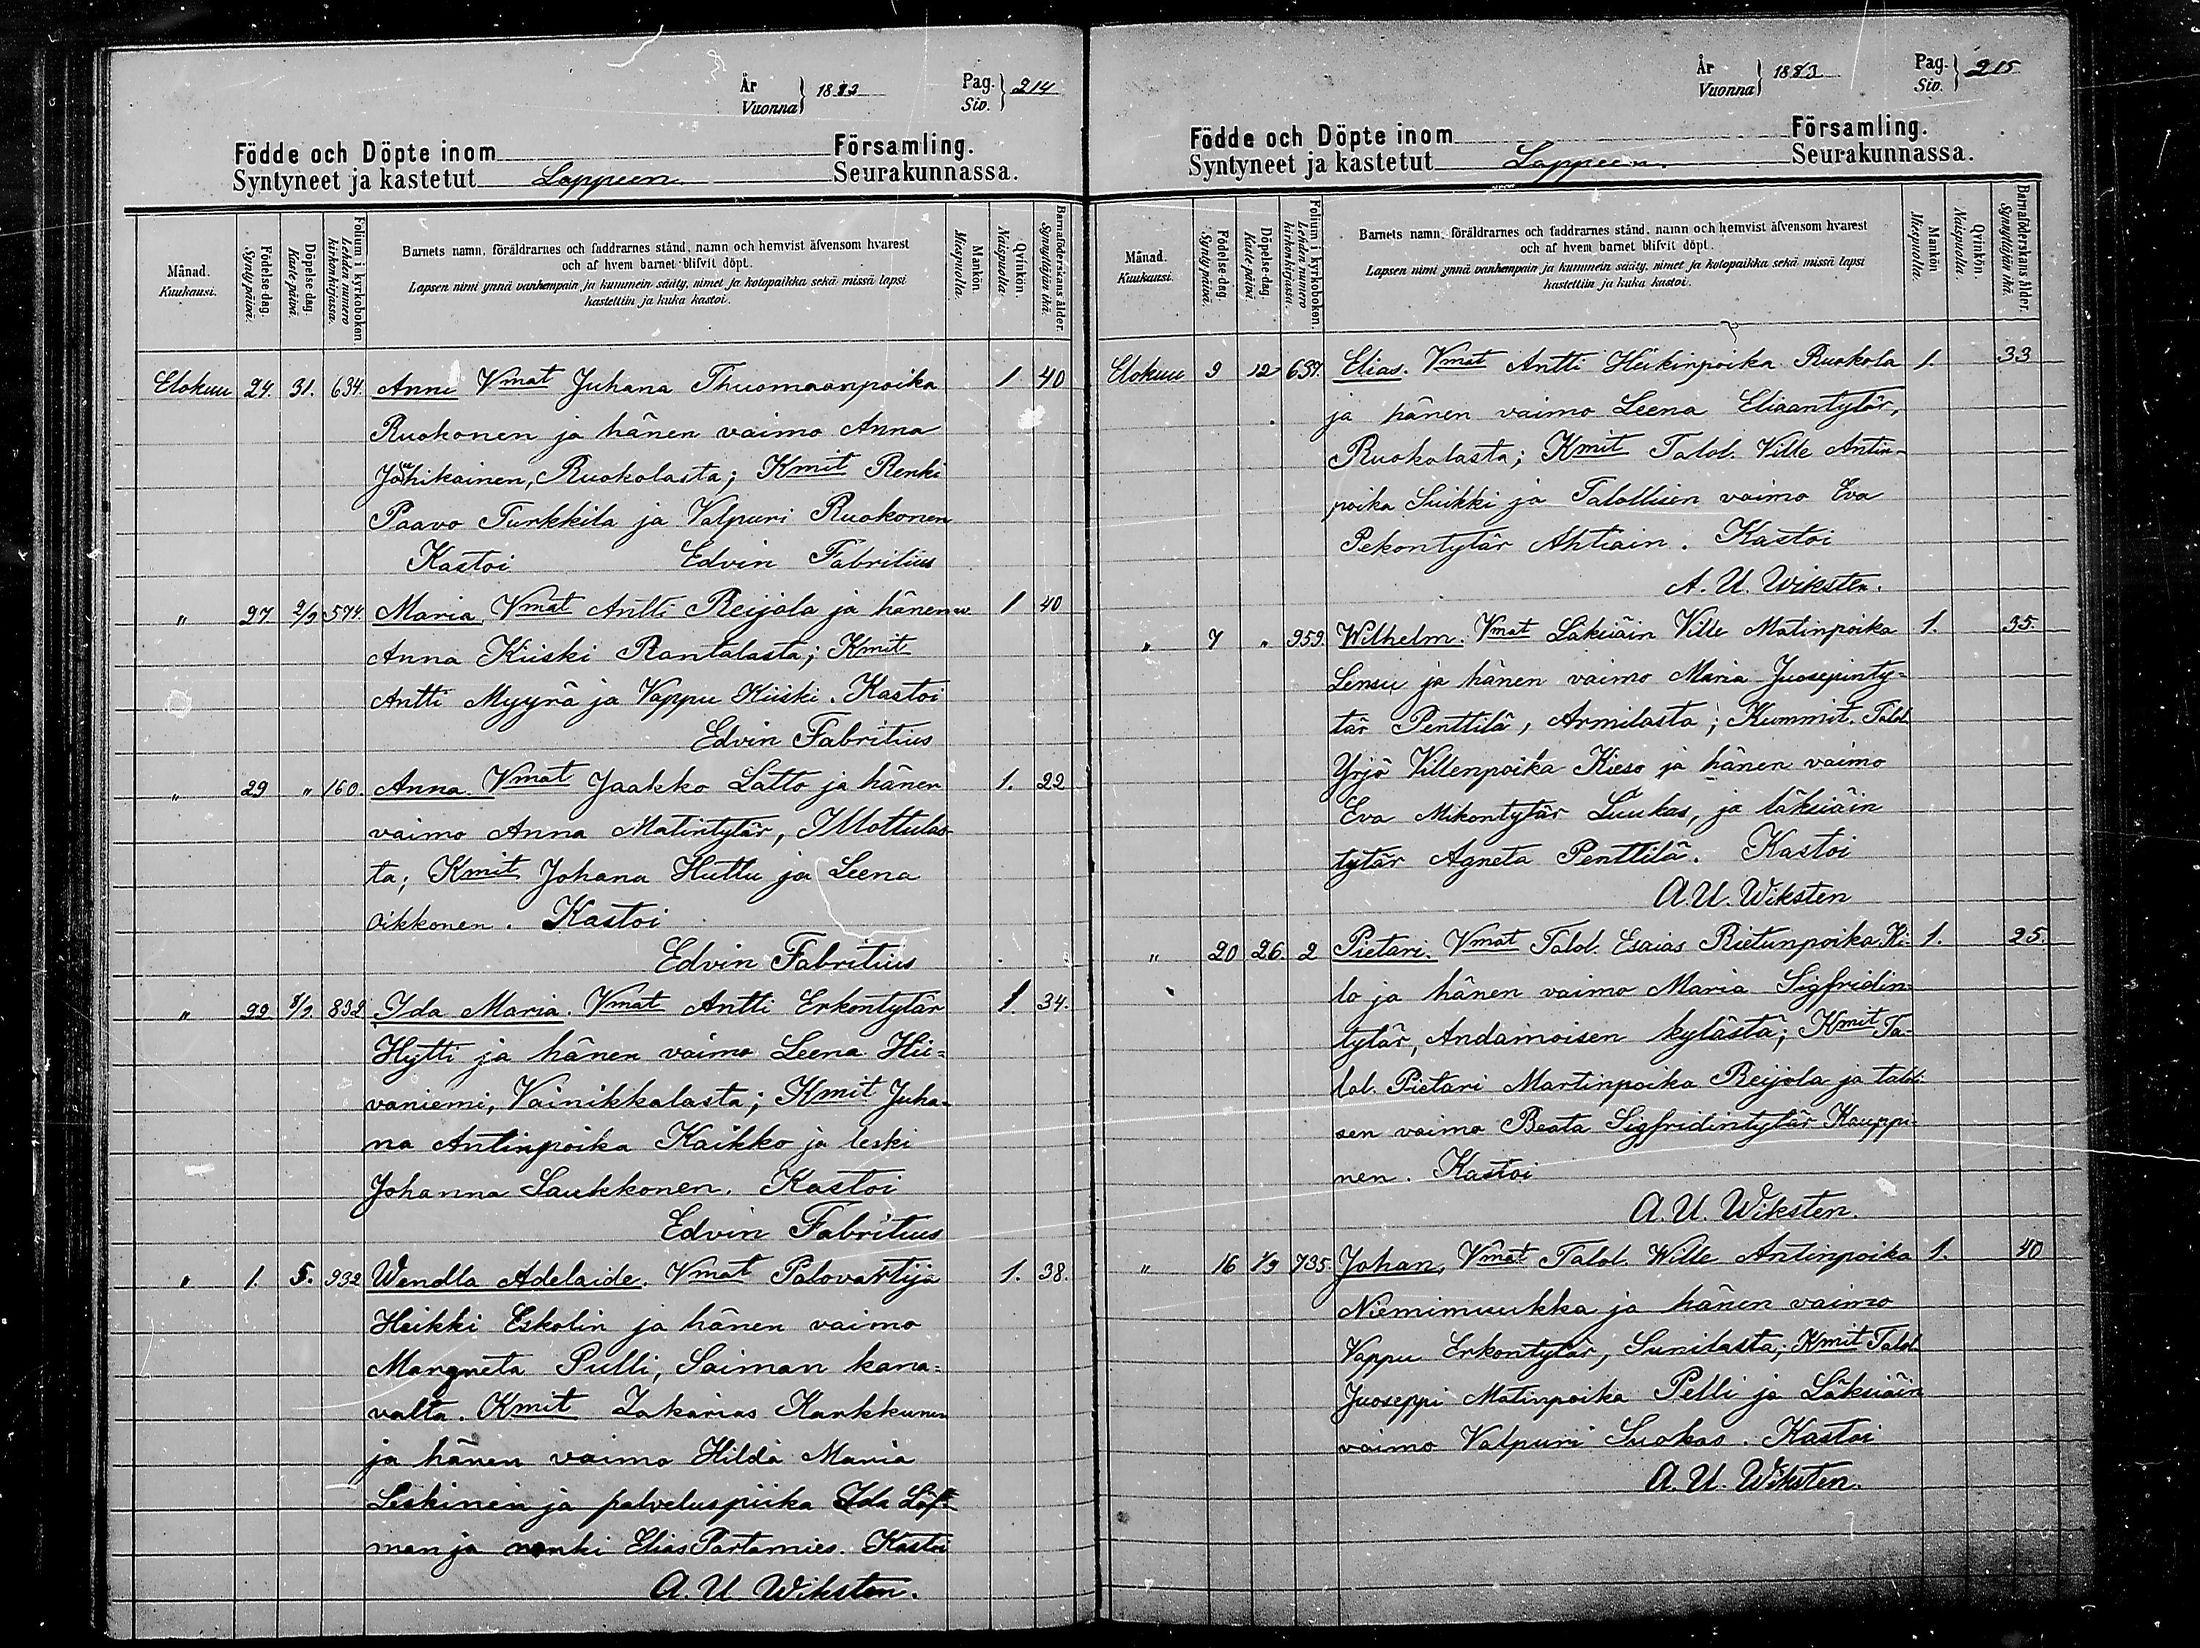 År
Vuonna } 1883
Pag.
Siv. } 214
Födde och Döpte inom Församling.
Syntyneet ja kastetut Lappeen Seurakunnassa.
Månad.
Kuukausi.
Födelse-dag.
Syntypäivä.
Döpelse-dag.
Kaste-päivä.
Folium i kyrkoboken
Lehden numero
kirkonkirjassa.
Barnets namn, föräldrarnes och faddrarnes stånd, namn och hemvist äfvensom hvarest
och af hvem barnet blifvit döpt.
Lapsen nimi ynnä vanhempain ja kummein sääty, nimet ja kotopaikka sekä missä lapsi
kastettiin ja kuka kastoi.
Mankön.
Miespuolia.
Qvinkön.
Naispuolia.
Barnaföderskans ålder.
Synnyttäjän ikä.
Elokuu 24. 31. 634. Anni Vmat Juhana Thuomaanpoika 1 40
Ruokonen ja hänen vaimo Anna
Ruokolasta; Kmit Renki
Paavo Turkkila ja Valpuri Ruokonen
Kastoi Edvin Fabritius
" 27 2/9 574. Maria. Vmat Antti Reijola ja hänen v. 1 40
Anna Kiiski Rantalasta; Kmit
Antti Myyrä ja Vappu Kiiski. Kastoi
Edvin Fabritius
" 29 " 160. Anna. Vmat Jaakko Latto ja hänen 1. 22
vaimo Anna Matintytär, Mottulas-
ta; Kmit Johana Huttu ja Leena
Oikkonen. Kastoi
Edvin Fabritius
" 22 8/9. 832 Ida Maria. Vmat Antti Erkontytär 1. 34.
Hytti ja hänen vaimo Leena Hii=
vaniemi, Vainikkalasta; Kmit Juha-
na Antinpoika Kaikko ja leski
Johanna Saukkonen. Kastoi
Edvin Fabritius
" 1. 5. 932 Wendla Adelaide. Vmat Palovartija 1. 38.
Heikki Eskolin ja hänen vaimo
Margneta Pulli, Saiman kana=
valta. Kmit Zakarias Karkkunen
ja hänen vaimo Hilda Maria
Leskinen ja palveluspiika Ida Löf=
man ja renki Elias Partamies. Kastoi
A. U. Wiksten.
År
Vuonna } 1883
Pag.
Siv. } 215
Födde och Döpte inom Församling.
Syntyneet ja kastetut Lappeen Seurakunnassa.
Månad.
Kuukausi.
Födelse-dag.
Syntypäivä.
Döpelse-dag.
Kaste-päivä.
Folium i kyrkoboken
Lehden numero
kirkonkirjassa.
Barnets namn, föräldrarnes och faddrarnes stånd, namn och hemvist äfvensom hvarest
och af hvem barnet blifvit döpt.
Lapsen nimi ynnä vanhempain ja kummein sääty, nimet ja kotopaikka sekä missä lapsi
kastettiin ja kuka kastoi.
Mankön
Miespuolia.
Qvinkön.
Naispuolia.
Barnaföderskans ålder.
Synnyttäjän ikä.
Elokuu 9 12 659. Elias. Vmat Antti Heikinpoika Ruokola 1. 33
ja hänen vaimo Leena Eliaantytär,
Ruokolasta; Kmit Talol. Ville Antin-
poika Suikki ja Talollisen vaimo Eva
Pekontytär Ahtiain. Kastoi
A. U. Wiksten.
" 7 " 959. Wilhelm. Vmat Läksiäin Ville Matinpoika 1. 35.
Lensu ja hänen vaimo Maria Juosepinty-
tär Penttilä, Armilasta; Kummit. Talol.
Yrjö Villenpoika Kieso ja hänen vaimo
Eva Mikontytär Luukas, ja läksiäin
tytär Agneta Penttilä. Kastoi
A. U. Wiksten
" 20 26. 2 Pietari. Vmat Talol. Esaias Rietunpoika Ki- 1. 25.
lo ja hänen vaimo Maria Sigfridin-
tytär, Andamoisen kylästä; Kmit Ta-
lol. Pietari Martinpoika Reijola ja taloli-
sen vaimo Beata Sigfridintytär Kauppi-
nen. Kastoi
A. U. Wiksten.
" 16 1/9 735. Johan, Vmat Talol. Wille Antinpoika 1. 40
Niemimuukka ja hänen vaimo
Vappu Erkontytär, Sunilasta; Kmit Talol
Juoseppi Matinpoika Pelli ja Läksiäin
vaimo Valpuri Suokas. Kastoi
A. U. Wiksten.